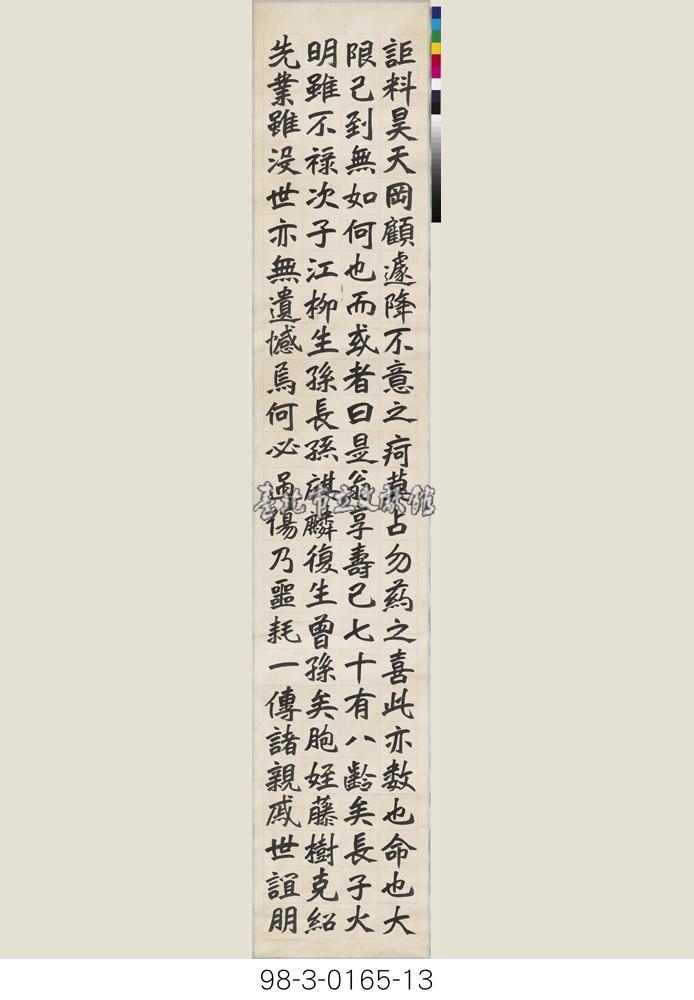 詎料昊天岡顧遽降不意之疴莫占勿藥之喜此亦数也命也大
限已到無如何也而或者曰是翁享壽已七十有八齡矣長子火
明雖不祿次子江柳生孫長孫麒麟復生曾孫矣胞姪藤樹克紹
先業雖没世亦無遺憾焉何必吊傷乃噩耗一傳諸親戚世誼朋
臺北市立文獻館
98-3-0165-13